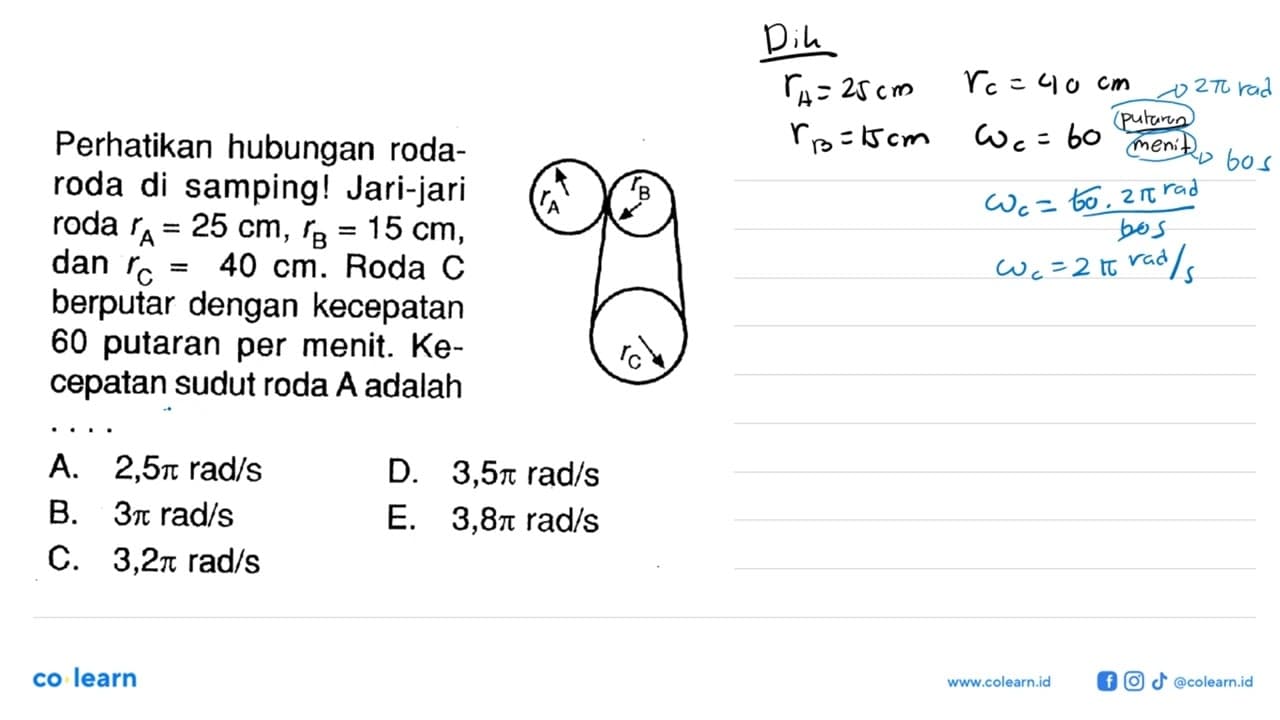 Perhatikan hubungan roda-
roda di samping! Jari-jari
roda r_A = 25 cm, r_B = 15 cm,
dan r_C = 40 cm. Roda C
berputar dengan kecepatan
60 putaran per menit. Ke-
cepatan sudut roda A adalah
. . . .
A. 2,5π rad/s
B. 3π rad/s
C. 3,2π rad/s
D. 3,5π rad/s
E. 3,8π rad/s
r_A
r_B
r_C
Dih
r_A = 25 cm r_C = 40 cm
r_B = 15 cm ω_c = 60 putaran/menit
2π rad
60 s
ω_c = 60 . 2π rad / 60 s
ω_c = 2π rad/s
co learn
www.colearn.id
@colearn.id